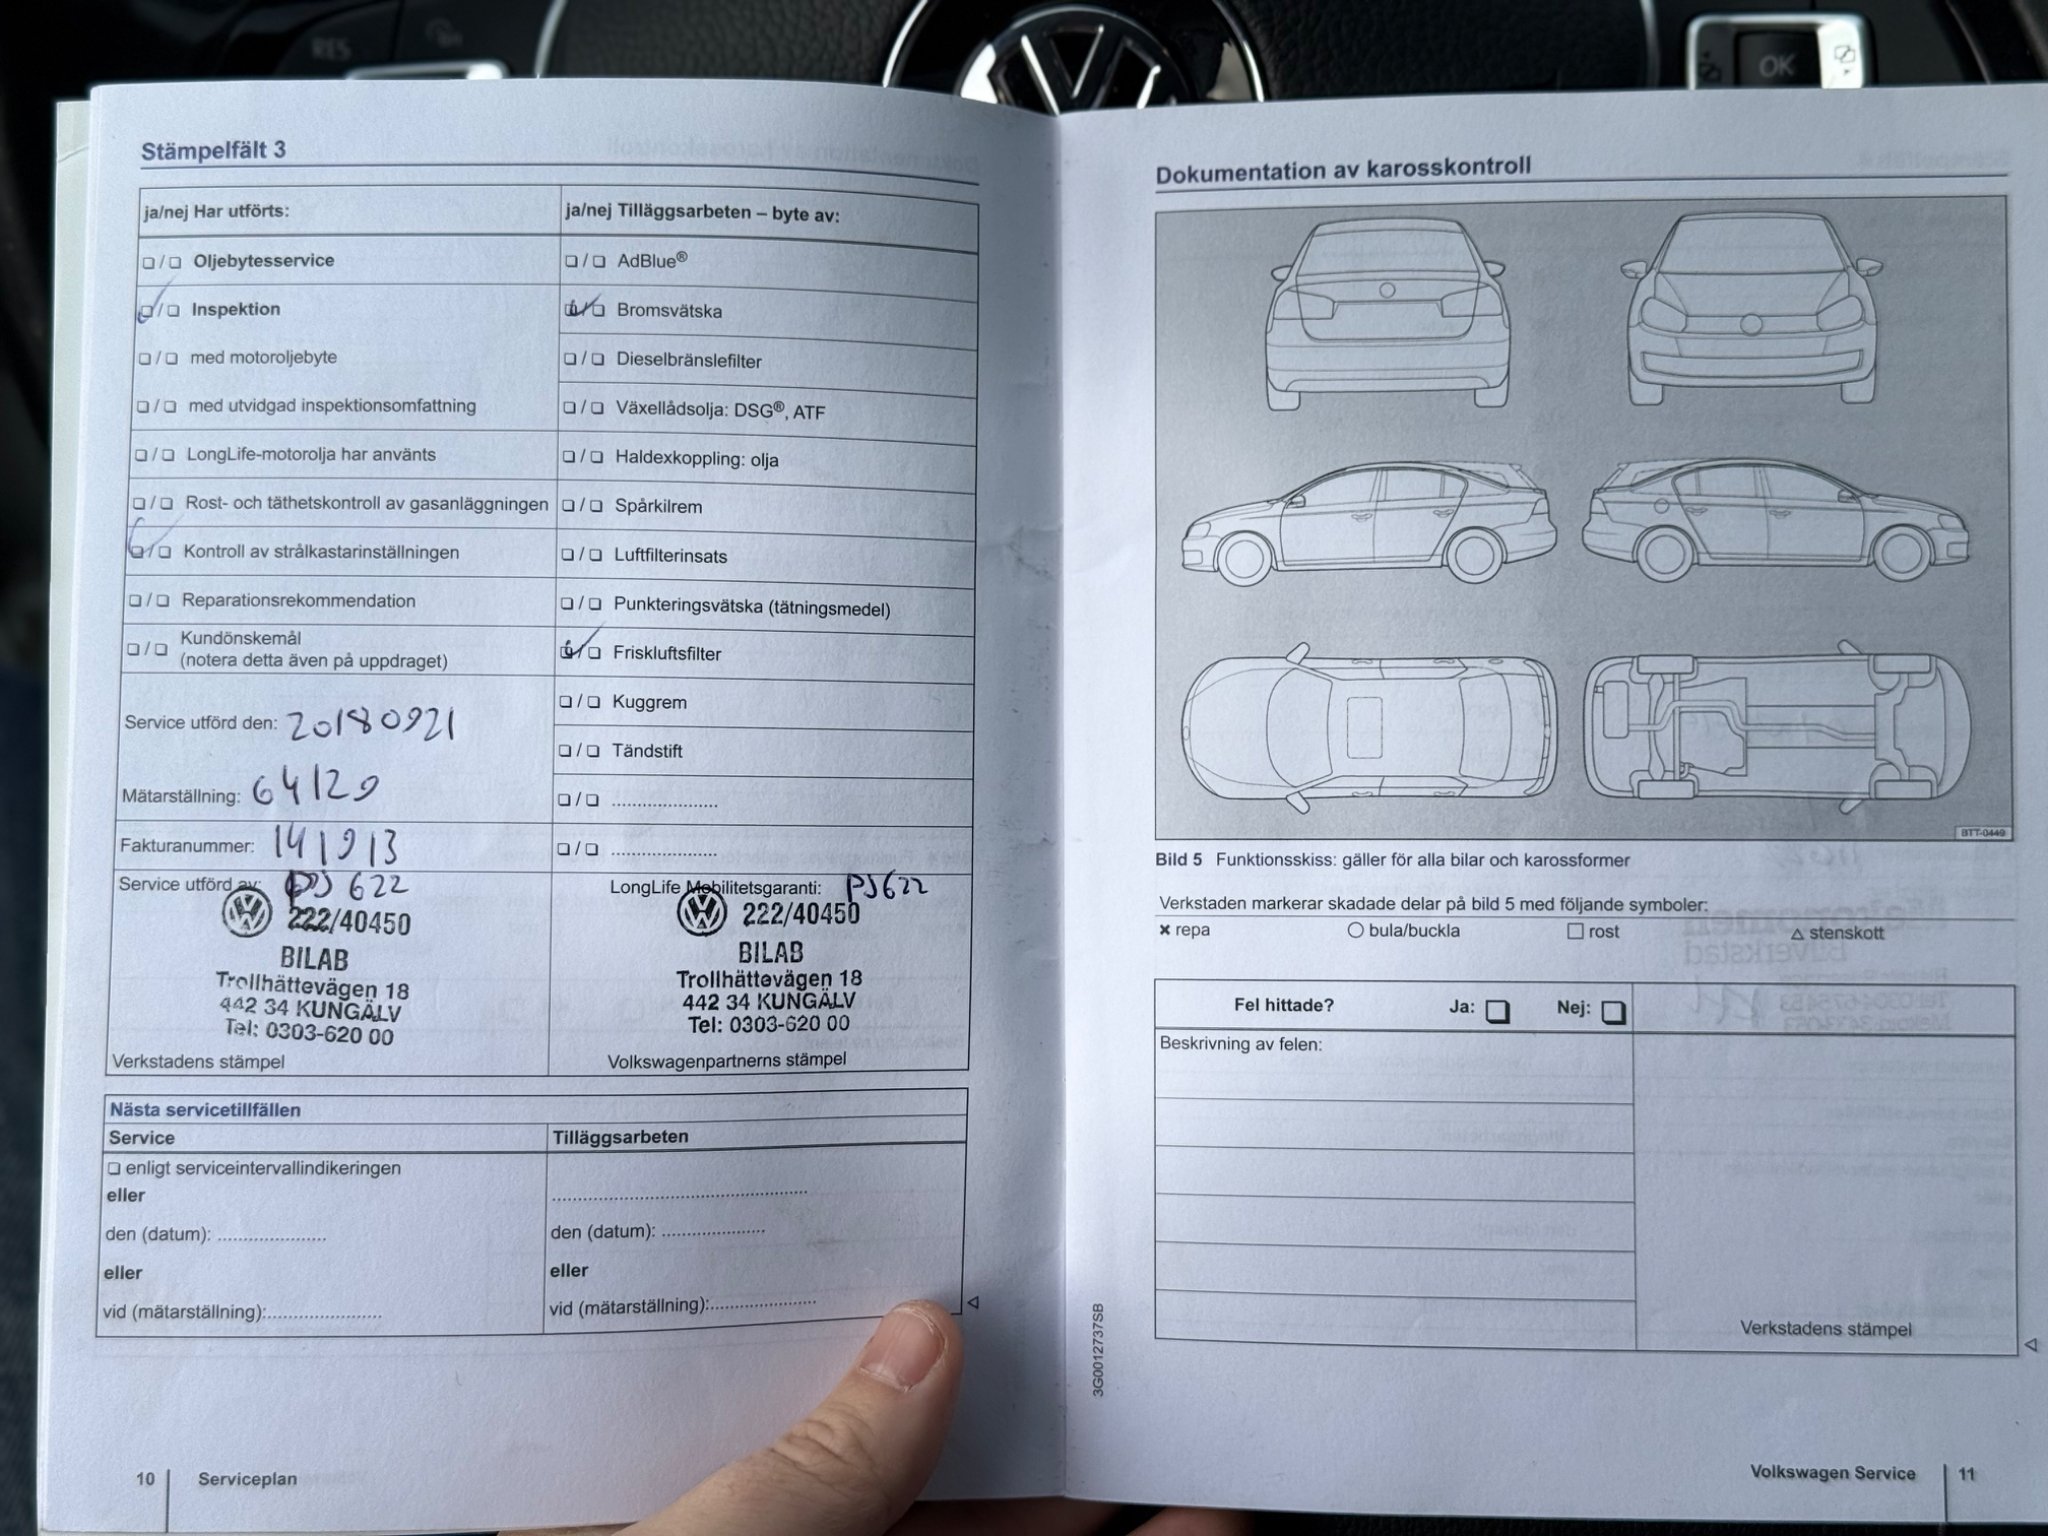 RES
OK
Stämpelfält 3
ja/nej Har utförts:
ja/nej Tilläggsarbeten – byte av:
❏ / ❏ Oljebytesservice
❏ / ❏ AdBlue®
❏ / ❏ Inspektion
❏ / ❏ Bromsvätska
❏ / ❏ med motoroljebyte
❏ / ❏ Dieselbränslefilter
❏ / ❏ med utvidgad inspektionsomfattning
❏ / ❏ Växellådsolja: DSG®, ATF
❏ / ❏ LongLife-motorolja har använts
❏ / ❏ Haldexkoppling: olja
❏ / ❏ Rost- och täthetskontroll av gasanläggningen
❏ / ❏ Spårkilrem
❏ / ❏ Kontroll av strålkastarinställningen
❏ / ❏ Luftfilterinsats
❏ / ❏ Reparationsrekommendation
❏ / ❏ Punkteringsvätska (tätningsmedel)
❏ / ❏ Kundönskemål
(notera detta även på uppdraget)
❏ / ❏ Friskluftsfilter
❏ / ❏ Kuggrem
Service utförd den: 20180921
❏ / ❏ Tändstift
Mätarställning: 64129
❏ / ❏ .....................
Fakturanummer: 141913
❏ / ❏ .....................
Service utförd av: PJ 622
222/40450
BILAB
Trollhättevägen 18
442 34 KUNGÄLV
Tel: 0303-620 00
Verkstadens stämpel
LongLife Mobilitetsgaranti: PJ622
222/40450
BILAB
Trollhättevägen 18
442 34 KUNGÄLV
Tel: 0303-620 00
Volkswagenpartnerns stämpel
Nästa servicetillfällen
Service
Tilläggsarbeten
❏ enligt serviceintervallindikeringen
eller
den (datum): .....................
eller
vid (mätarställning):.....................
..................................................
den (datum): .....................
eller
vid (mätarställning):.....................
10 Serviceplan
Dokumentation av karosskontroll
BTT-0449
Bild 5 Funktionsskiss: gäller för alla bilar och karossformer
Verkstaden markerar skadade delar på bild 5 med följande symboler:
× repa
○ bula/buckla
□ rost
△ stenskott
Fel hittade? Ja: ❏ Nej: ❏
Beskrivning av felen:
Verkstadens stämpel
3G0012737SB
Volkswagen Service 11